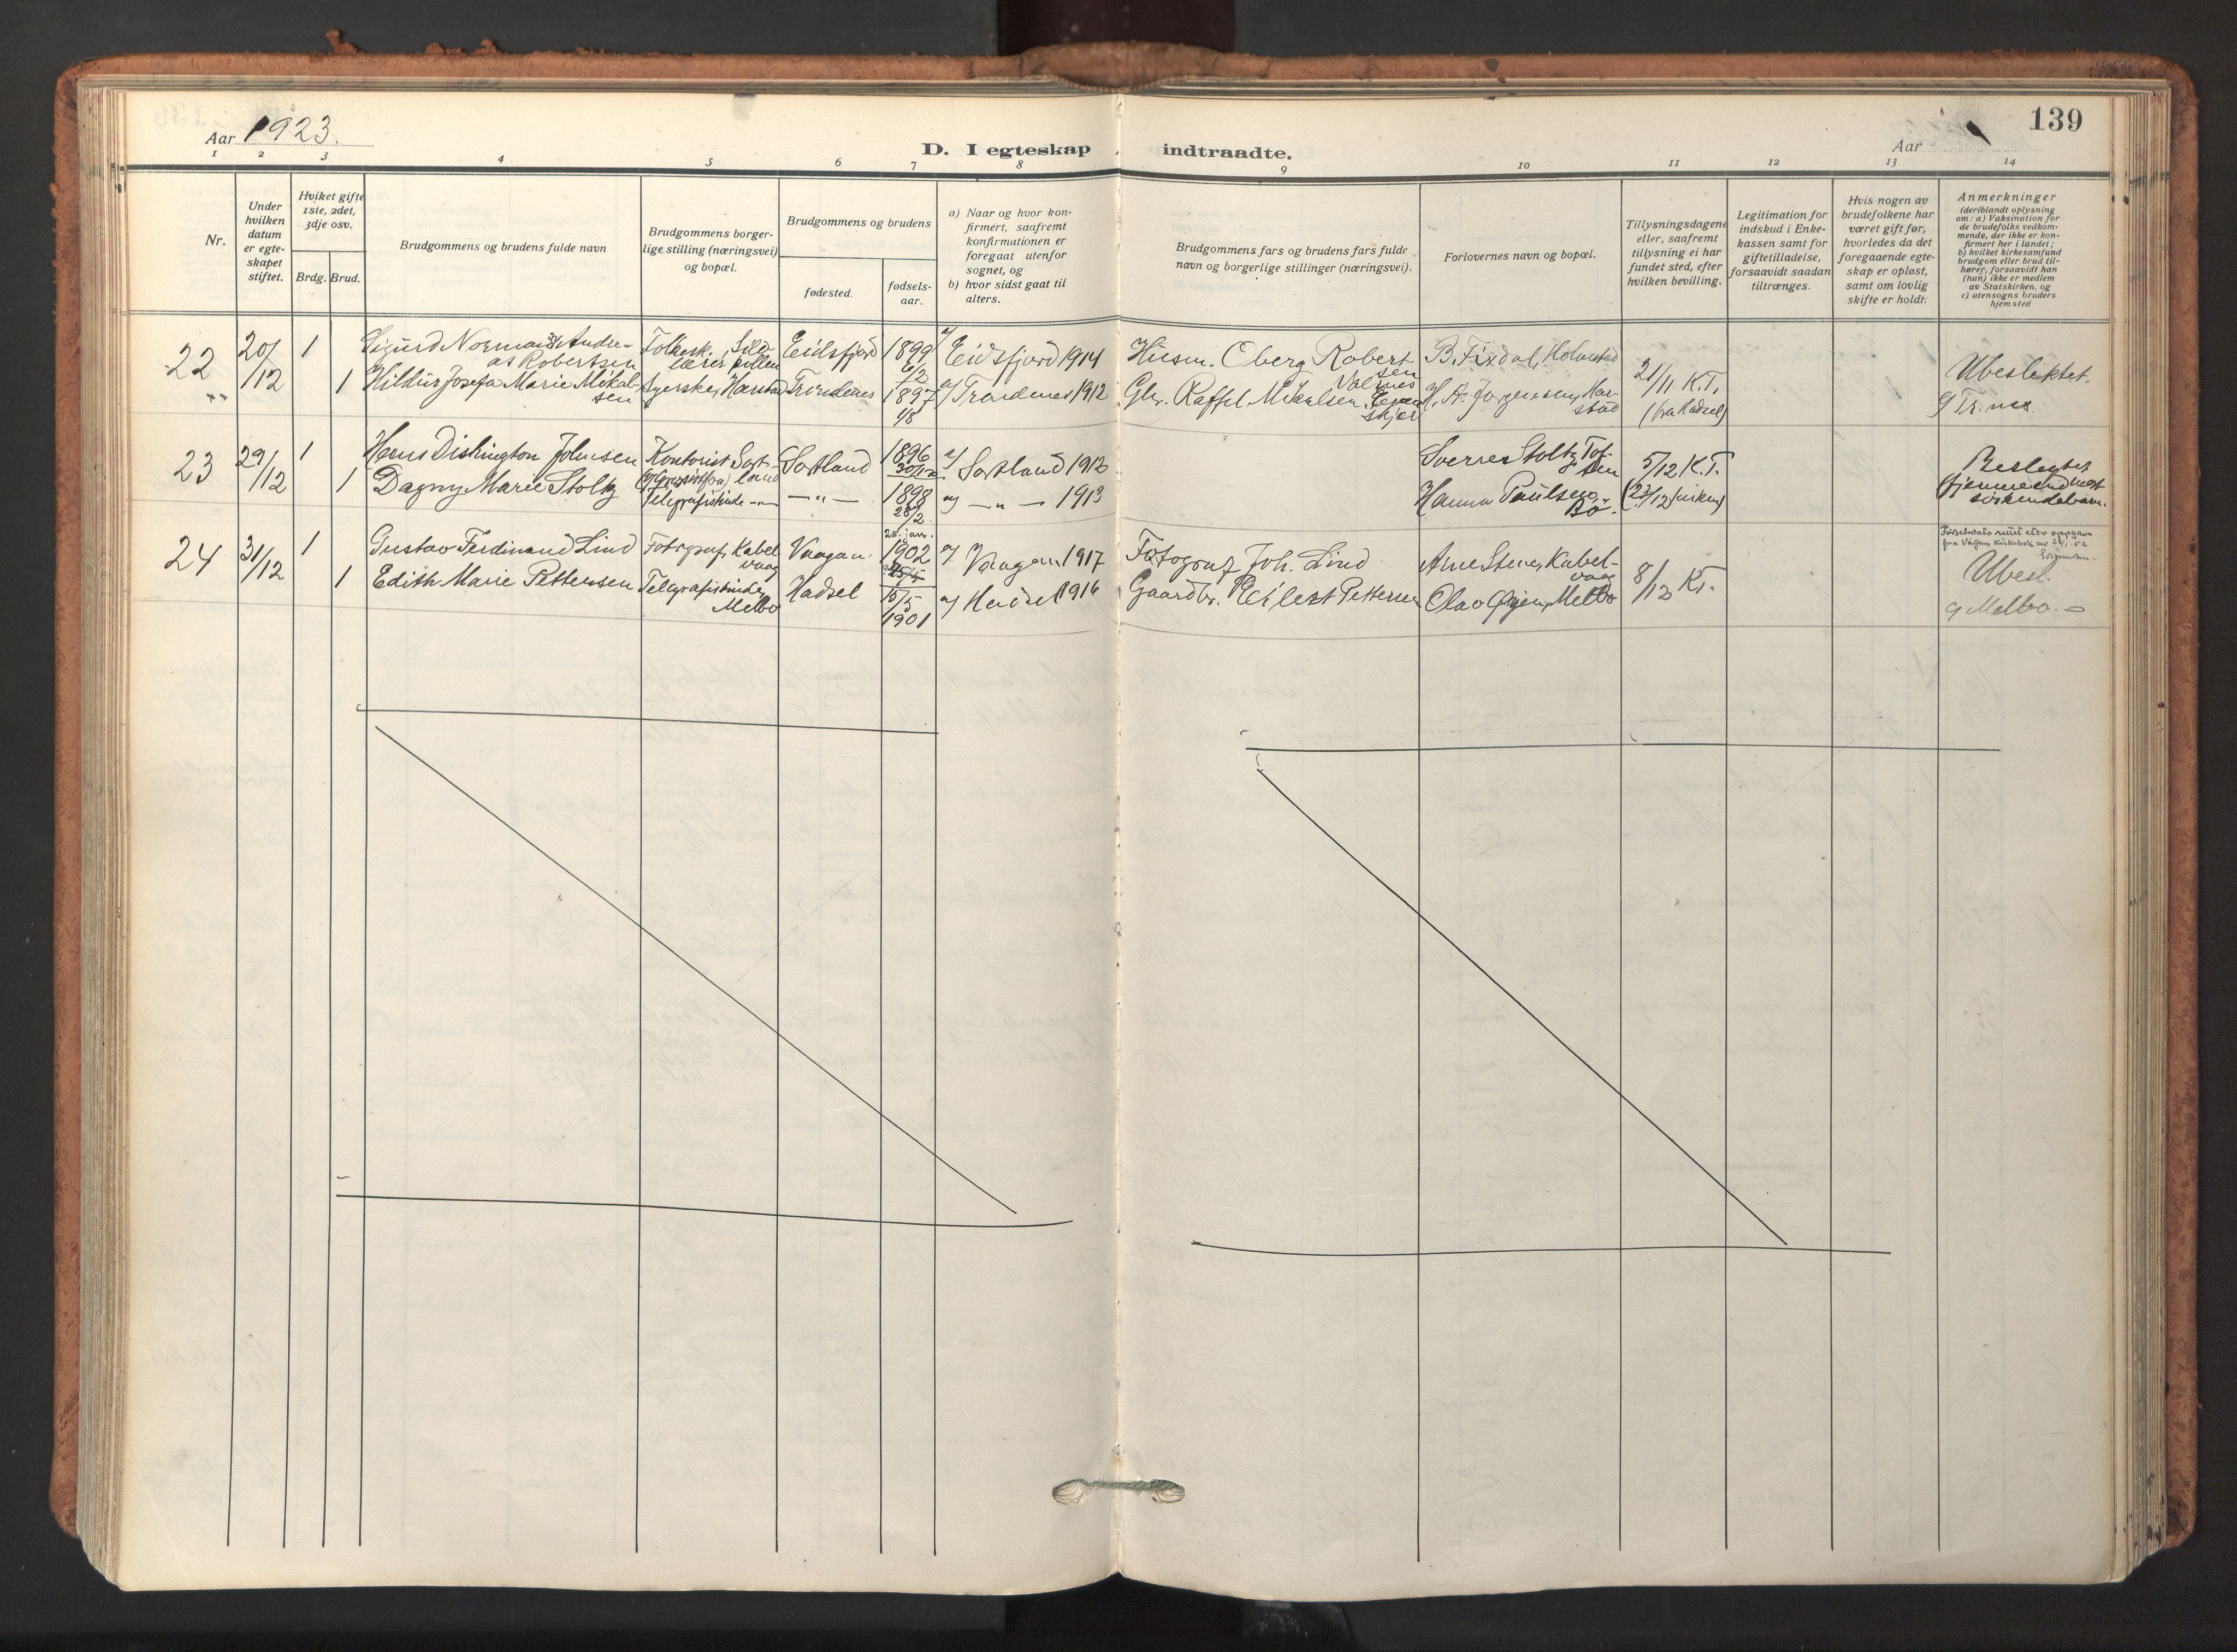 Aar 1923.
D. I egteskap indtraadte.
Aar
139
1 2 3 4 5 6 7 8 9 10 11 12 13 14
Nr.
Under hvilken datum er egteskapet stiftet.
Hvilket gifte 1ste, 2det, 3dje osv.
Brdg. Brud.
Brudgommens og brudens fulde navn
Brudgommens borgerlige stilling (næringsvei) og bopæl.
Brudgommens og brudens
fødested.
fødselsaar.
a) Naar og hvor konfirmert, saafremt konfirmationen er foregaat utenfor sognet, og
b) hvor sidst gaat til alters.
Brudgommens fars og brudens fars fulde navn og borgerlige stillinger (næringsvei).
Forlovernes navn og bopæl.
Tillysningsdagene eller, saafremt tillysning ei har fundet sted, efter hvilken bevilling.
Legitimation for indskud i Enkekassen samt for giftetilladelse, forsaavidt saadan tiltrænges.
Hvis nogen av brudefolkene har været gift før, hvorledes da det foregaaende egteskap er opløst, samt om lovlig skifte er holdt.
Anmerkninger
(deriblandt oplysning om: a) Vaksination for de brudefolks vedkommende, der ikke er konfirmert her i landet;
b) hvilket kirkesamfund brudgom eller brud tilhører, forsaavidt han (hun) ikke er medlem av Statskirken, og
c) utensogns bruders hjemsted
22 20/12 1 Sigurd Normann Andreas Robertsen Folkesk. lærer, Sildpollen Eidsfjord 1899 6/2 a) Eidsfjord 1914 Husm. Oberg Robertsen B. Fixdal, Holmstad 21/11 K.T. Ubeslektet.
1 Hildur Josefa Marie Mikalsen Syerske, Harstad Trondenes 1897 a) Trondenes 1912 Gbr. Raffel Mikalsen, Evenskjer H. A. Jørgensen, Harstad (fra Hadsel)
23 29/12 1 Hans Dishington Johnsen Kontorist Sortland Sortland 1896 30/12 a) Sortland 1912 Sverre Stoltz 5/12 K.T. Beslegtet
1 Dagny Marie Stoltz Telegrafistinde -"- -"- 1898 28/2 a) -"- 1913 Hanna Paulsen, Bø. søskendebarn.
24 31/12 1 Gustav Ferdinand Lind Fotograf, Kabelvaag Vaagan 25. jan. 1902 a) Vaagan 1917 Fotograf Joh. Lind Arne Steve, Kabelvaag 8/12 K.T. Ubesl.
1 Edith Marie Pettersen Telegrafistinde, Melbo Hadsel 15/5 1901 a) Hadsel 1916 Gaardbr. Eilert Pettersen Olav Øyen, Melbo Melbo.